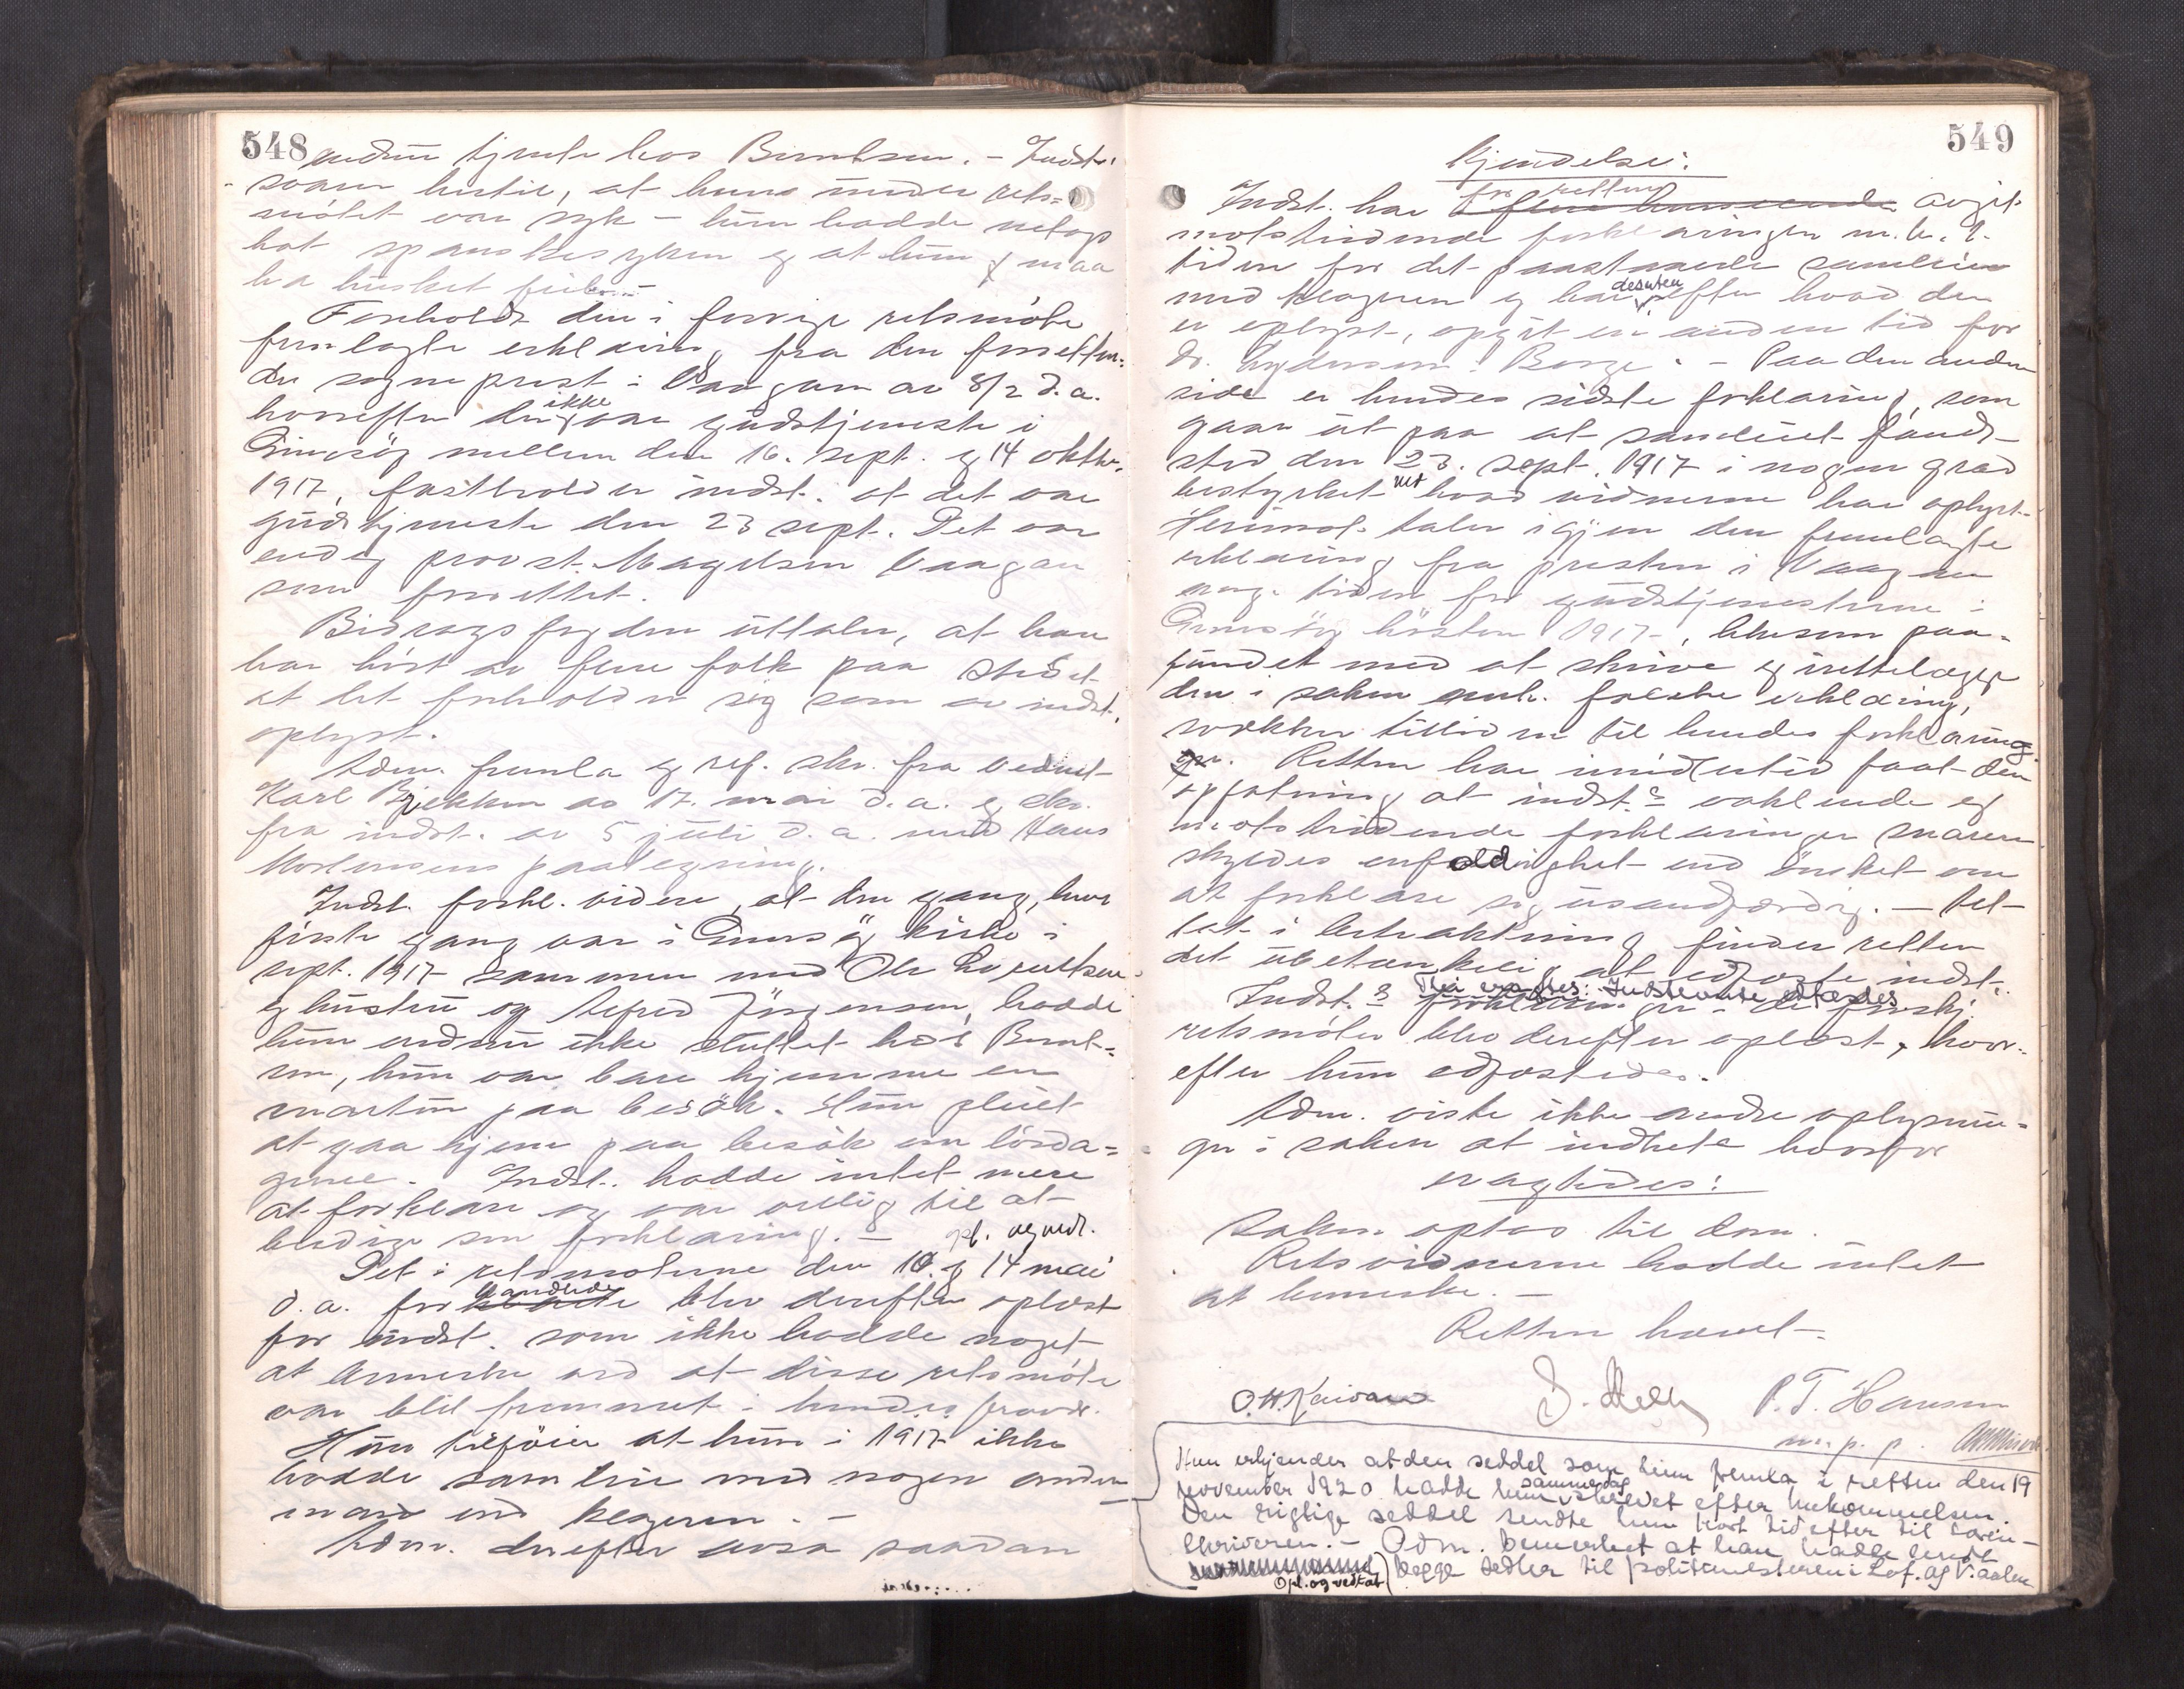 548
endnu tjente hos Berntsen. - Indst.
svarer hertil, at hun under rets-
mötet var syk - hun hadde netop
hat spanskesyken og at hun maa
ha husket feil.
Foreholdt den i forrige retsmöte
fremlagte erklæring fra den forretten-
de sogneprest i Vaagan av 8/2 d.a.
hvorefter der ikke var gudstjeneste i
Gimsöy mellem den 16. sept. og 14 oktbr.
1917, fastholder indst. at det var
gudstjeneste den 23 sept. Det var
endog provst Magelsen Vaagan
som forrettet.
Bidragsfogden uttaler, at han
har hört av flere folk paa stedet
at det forholder sig som av indst.
oplyst.
Adm. fremla og ref. skr. fra vidnet
Karl Bjekken av 17. mai d.a. og skr.
fra indst. av 5 juli d.a. med Hans
Mortensens paategning.
Indst. forkl. videre, at den gang, hun
förste gang var i Gimsöy kirke i
sept. 1917 sammen med Ole Lorentsen
og hustru og Alfred Jörgensen, hadde
hun endnu ikke sluttet hos Bernt-
sen, hun var bare hjemme en
snartur paa besök. Hun pleiet
at gaa hjem paa besök om lörda-
gene. Indst. hadde intet mere
at forklare og var villig til at
beedige sin forklaring. - opl. og vedt.
Det i retsmöterne den 10. og 14 mai
d.a. forhandlede blev derefter oplæst
for indst. som ikke hadde noget
at bemerke ved at disse retsmöte
var blit fremmet i hendes fravær.
Hun tilföier at hun i 1917 ikke
hadde samleie med nogen anden
mand end klageren. -
Adm. derefter avsa saadan
549
Kjendelse:
Indst. har for retten avgit
motstridende forklaringer m.h.t.
tiden for det paastaaede samleie
med klageren og har desuten efter hvad der
er oplyst, opgit en anden tid for
dr. Lydersen i Borge. - Paa den anden
side er hendes sidste forklaring, som
gaar ut paa at samleiet fandt
sted den 23. sept. 1917 i nogen grad
bestyrket ved hvad vidnerne har oplyst.
Herimot taler igjen den fremlagte
erklæring fra presten i Vaagan
ang. tiden for gudstjenesterne i
Gimsöy hösten 1917, likesom paa-
fundet med at skrive og irettelægge
den i saken anh. falske erklæring,
svækker tilliden til hendes forklaring.
Retten har imidlertid faat den
opfatning at indst.s vaklende og
motstridende forklaringer snarere
skyldes enfoldighet end önsket om
at forklare sig usandfærdig. - Tat
i betraktning finder retten
det ubetænkelig at edfæste indst.
Thi eragtes: Indstevnte edfæstes
Indst.s forklaringer i de forskj.
retsmöter blev derefter oplæst, hvor-
efter hun edfæstedes.
Adm. viste ikke andre oplysnin-
ger i saken at indhente hvorfor
eragtedes:
Saken optas til dom.
Retsvidnerne hadde intet
at bemerke. -
Retten hævet.
P. T. Hansen
m. p. p.
Hun erkjender at den seddel som hun fremla i retten den 19
november 1920 hadde hun sammedag skrevet efter hukommelsen.
Den rigtige seddel sendte hun kort tid efter til soren-
skriveren. - Adm. bemerket at han hadde sendt
begge sedler til politimesteren i Lof. og V.aalen
Opl. og vedtat